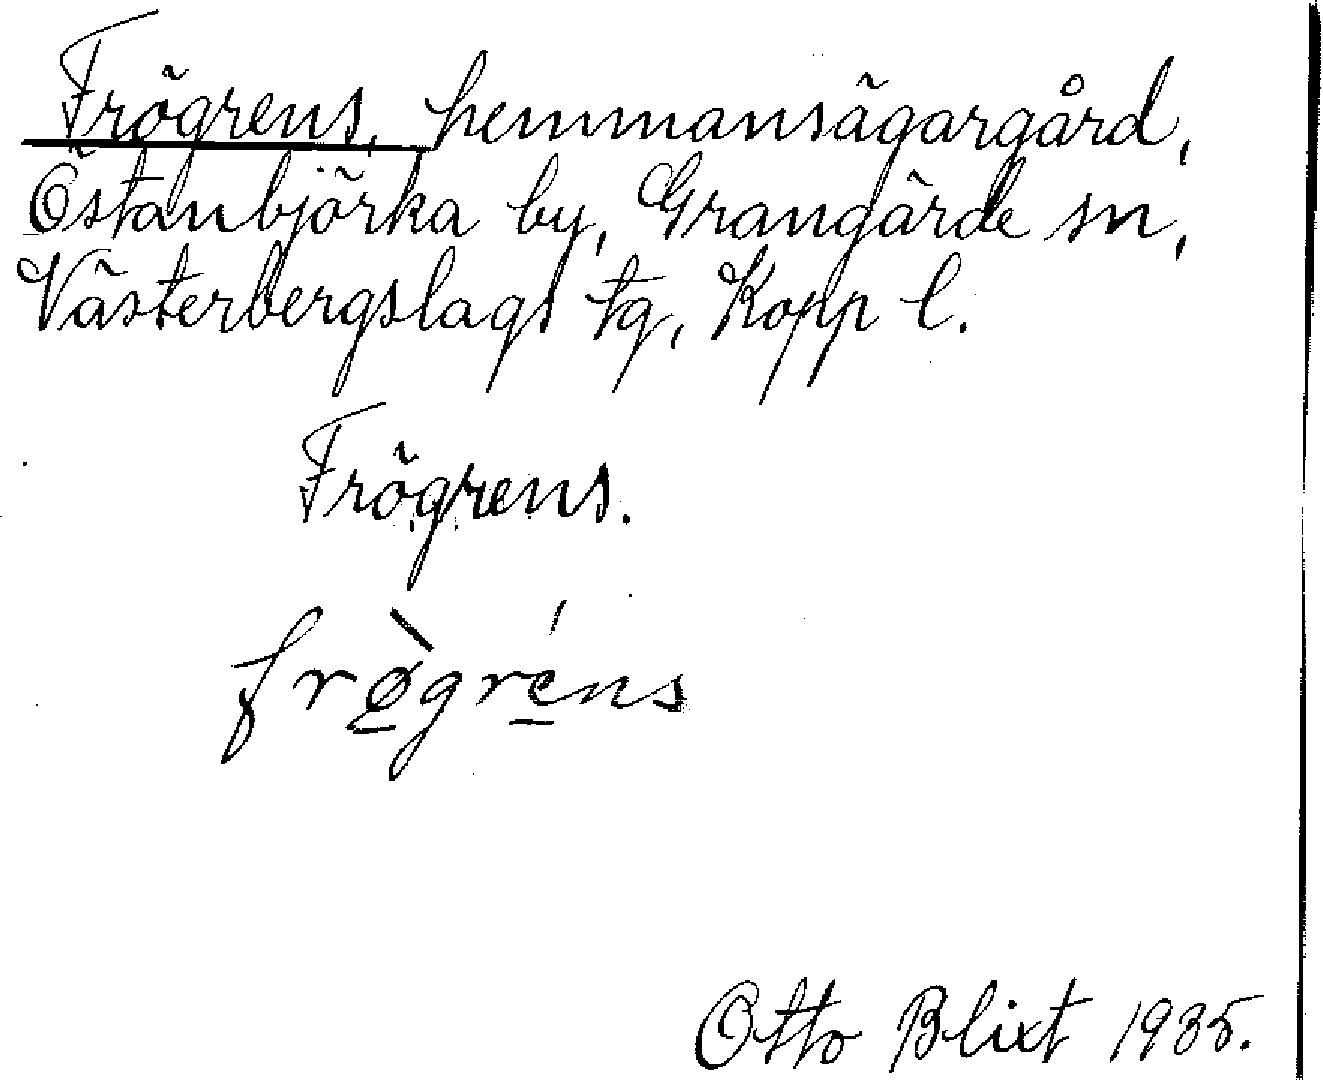 Frögrens, hemmansägargård,
Östanbjörka by, Grangärde sn,
Västerbergslags tg, Kopp l.
Frögrens.
frø̀gréns
Otto Blixt 1935.